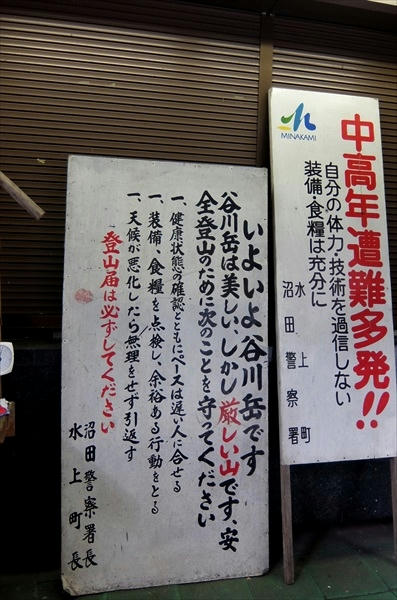 MINAKAMI
中高年遭難多発!!
自分の体力・技術を過信しない
装備・食糧は充分に
水上町
沼田警察署
いよいよ谷川岳です
谷川岳は美しい、しかし厳しい山です、安
全登山のために次のことを守ってください
一、健康状態の確認とともにペースは遅い人に合せる
一、装備、食糧を点検し、余裕ある行動をとる
一、天候が悪化したら無理をせず引返す
登山届は必ずしてください
沼田警察署長
水上町長